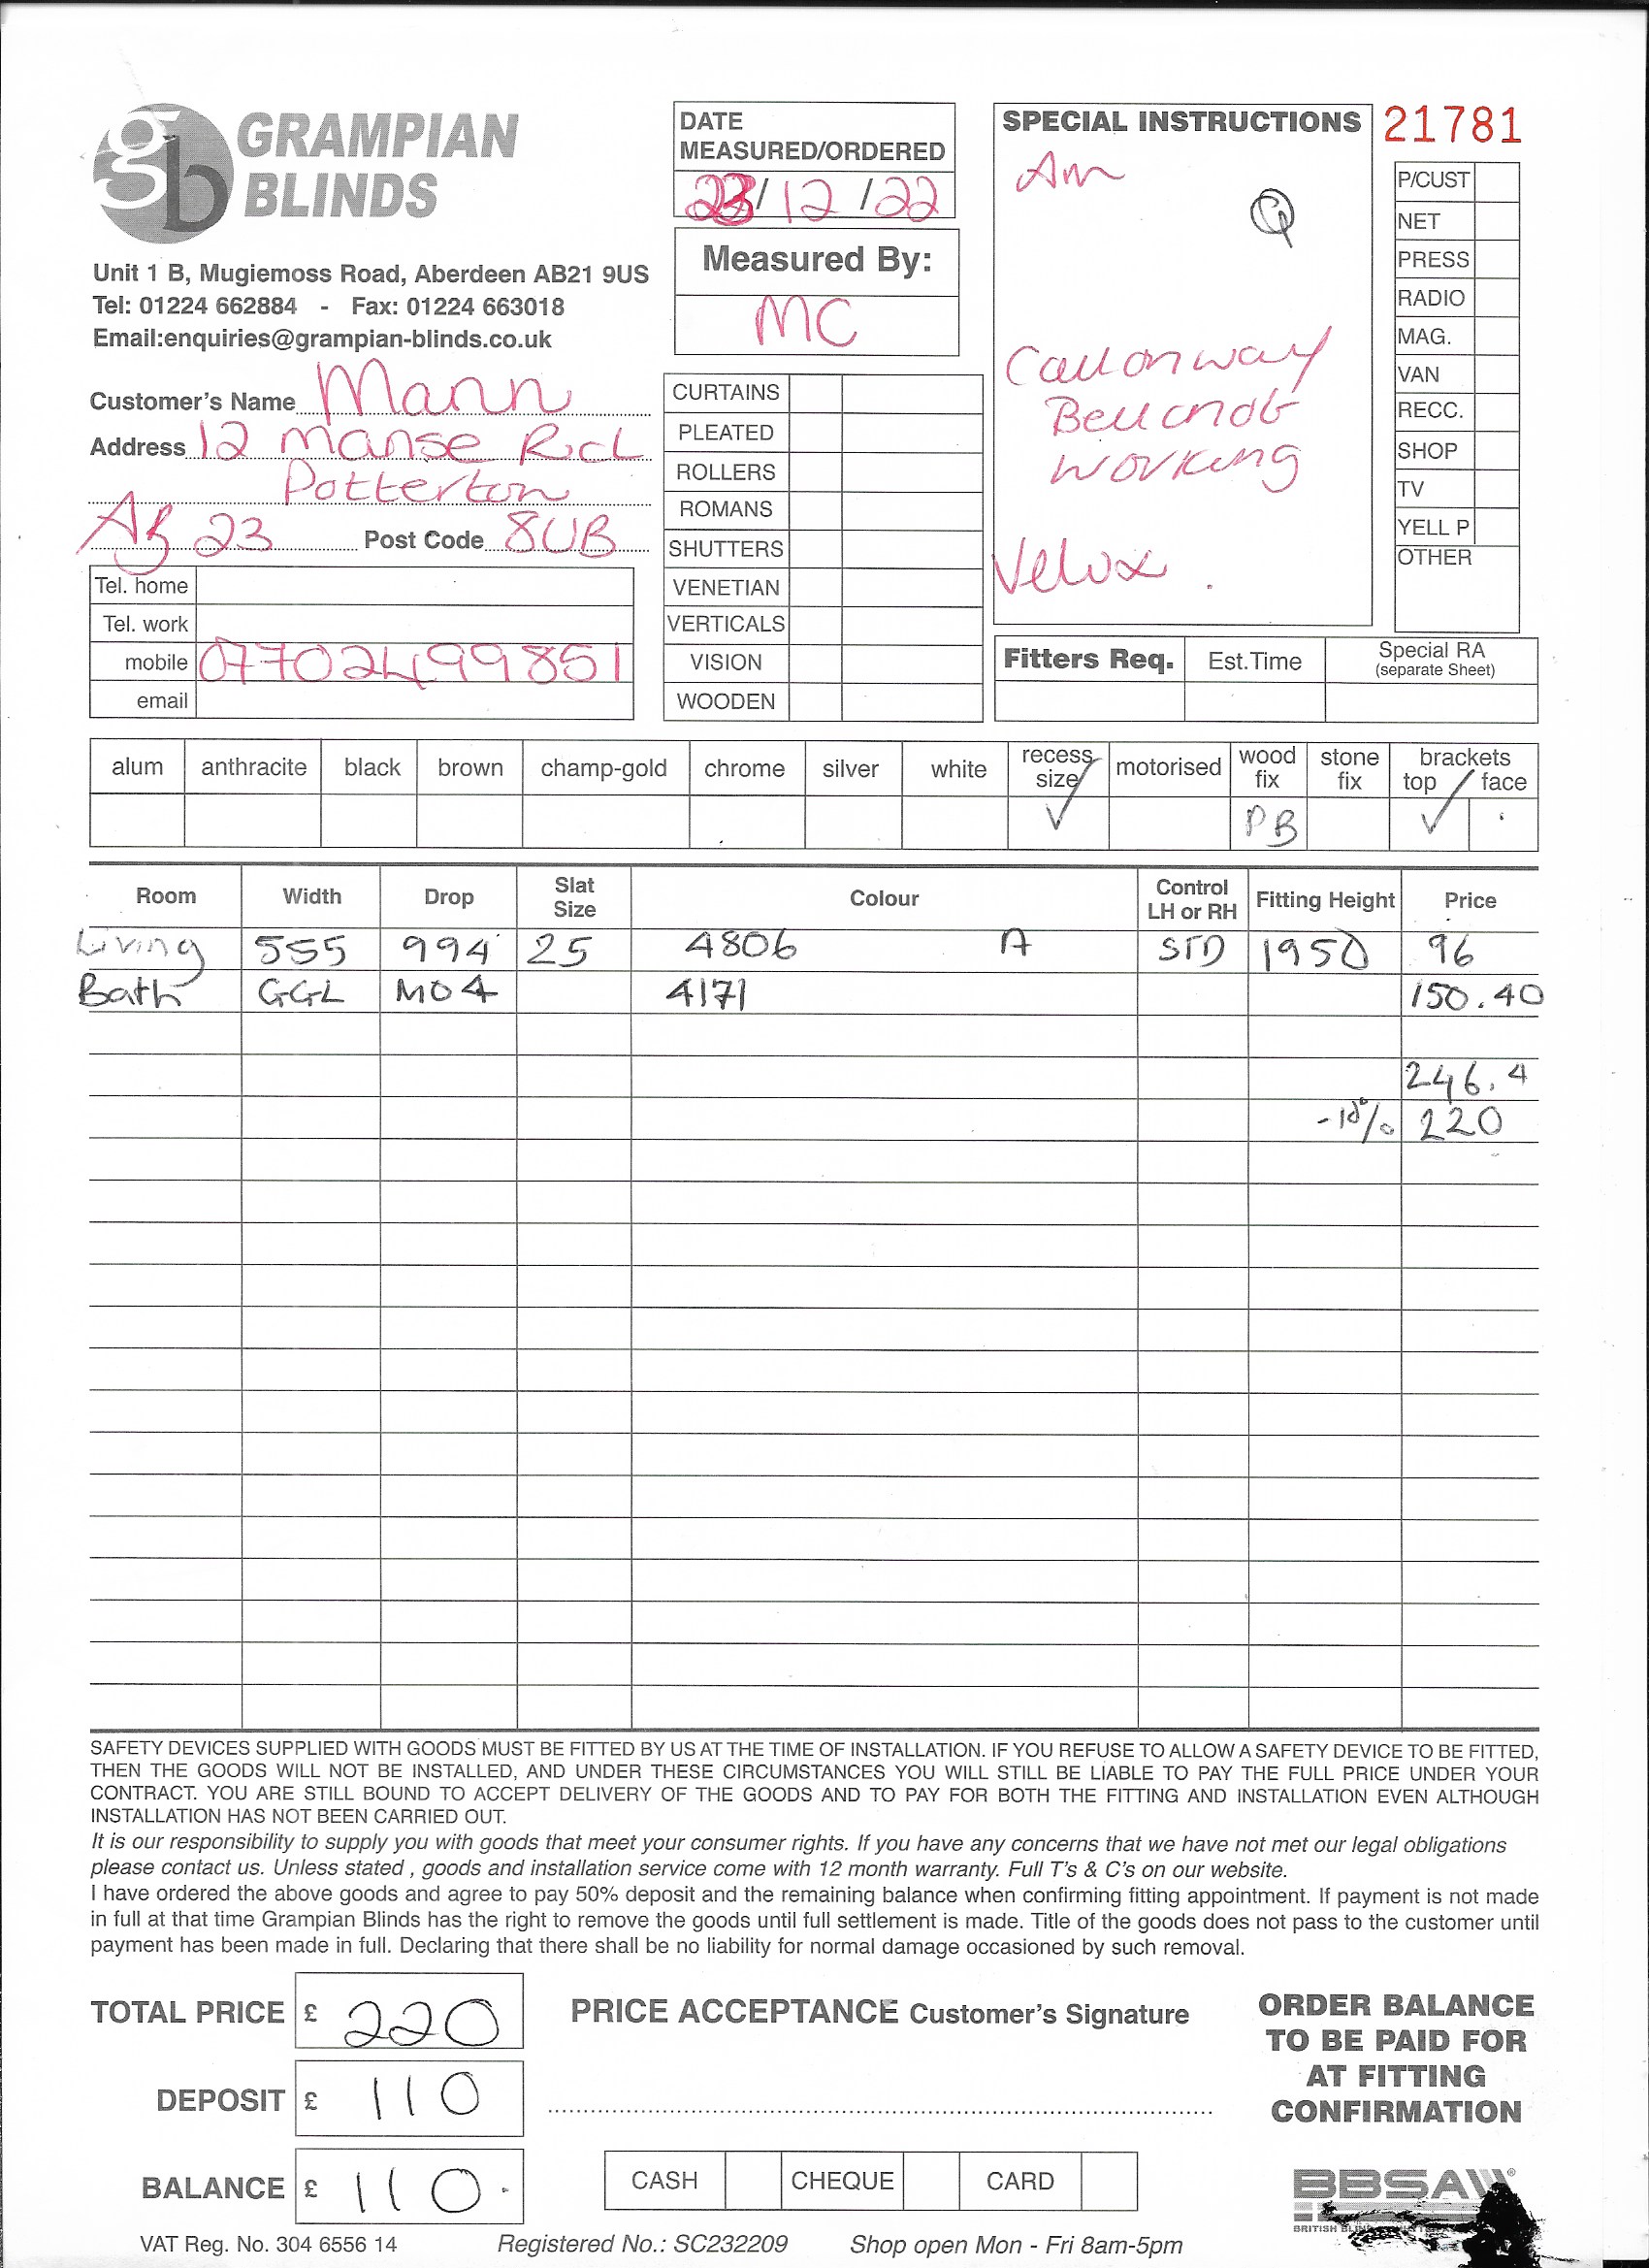 gb GRAMPIAN
BLINDS
Unit 1 B, Mugiemoss Road, Aberdeen AB21 9US
Tel: 01224 662884 - Fax: 01224 663018
Email:enquiries@grampian-blinds.co.uk
Customer's Name Mann
Address 12 Manse Rd
Potterton
AB 23 Post Code 8UB
Tel. home
Tel. work
mobile 07702499851
email
DATE
MEASURED/ORDERED
23/12/22
Measured By:
MC
CURTAINS
PLEATED
ROLLERS
ROMANS
SHUTTERS
VENETIAN
VERTICALS
VISION
WOODEN
SPECIAL INSTRUCTIONS
Am
Q
Call on way
Bell cnot
working
Velux.
21781
P/CUST
NET
PRESS
RADIO
MAG.
VAN
RECC.
SHOP
TV
YELL P
OTHER
Fitters Req. Est.Time Special RA
(separate Sheet)
alum anthracite black brown champ-gold chrome silver white recess size motorised wood fix stone fix brackets top / face
✓ PB ✓
Room Width Drop Slat Size Colour Control LH or RH Fitting Height Price
Living 555 994 25 4806 A STD 1950 96
Bath GGL M04 4171 150.40
246.4
-10% 220
SAFETY DEVICES SUPPLIED WITH GOODS MUST BE FITTED BY US AT THE TIME OF INSTALLATION. IF YOU REFUSE TO ALLOW A SAFETY DEVICE TO BE FITTED,
THEN THE GOODS WILL NOT BE INSTALLED, AND UNDER THESE CIRCUMSTANCES YOU WILL STILL BE LIABLE TO PAY THE FULL PRICE UNDER YOUR
CONTRACT. YOU ARE STILL BOUND TO ACCEPT DELIVERY OF THE GOODS AND TO PAY FOR BOTH THE FITTING AND INSTALLATION EVEN ALTHOUGH
INSTALLATION HAS NOT BEEN CARRIED OUT.
It is our responsibility to supply you with goods that meet your consumer rights. If you have any concerns that we have not met our legal obligations
please contact us. Unless stated , goods and installation service come with 12 month warranty. Full T's & C's on our website.
I have ordered the above goods and agree to pay 50% deposit and the remaining balance when confirming fitting appointment. If payment is not made
in full at that time Grampian Blinds has the right to remove the goods until full settlement is made. Title of the goods does not pass to the customer until
payment has been made in full. Declaring that there shall be no liability for normal damage occasioned by such removal.
TOTAL PRICE £ 220
DEPOSIT £ 110
BALANCE £ 110.
PRICE ACCEPTANCE Customer's Signature
CASH CHEQUE CARD
ORDER BALANCE
TO BE PAID FOR
AT FITTING
CONFIRMATION
BBSA
BRITISH
VAT Reg. No. 304 6556 14 Registered No.: SC232209 Shop open Mon - Fri 8am-5pm